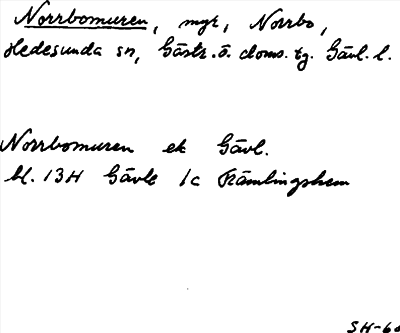 Norrbomuren, myr, Norrbo,
Hedesunda sn, Gästr. ö. doms. tg. Gävl. l.
Norrbomuren ek Gävl.
bl. 13H Gävle 1c Främlingshem
SH-60